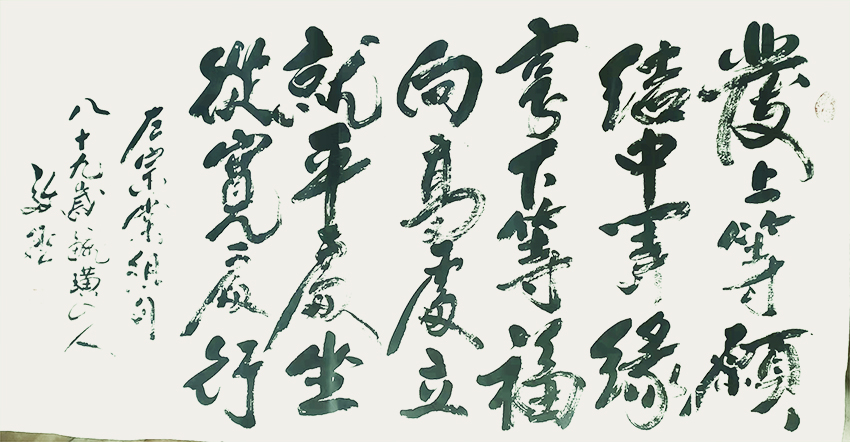 發上等願
結中等緣
享下等福
向高處立
就平處坐
從寬處行
左宗棠聯句
八十九歲璜山人